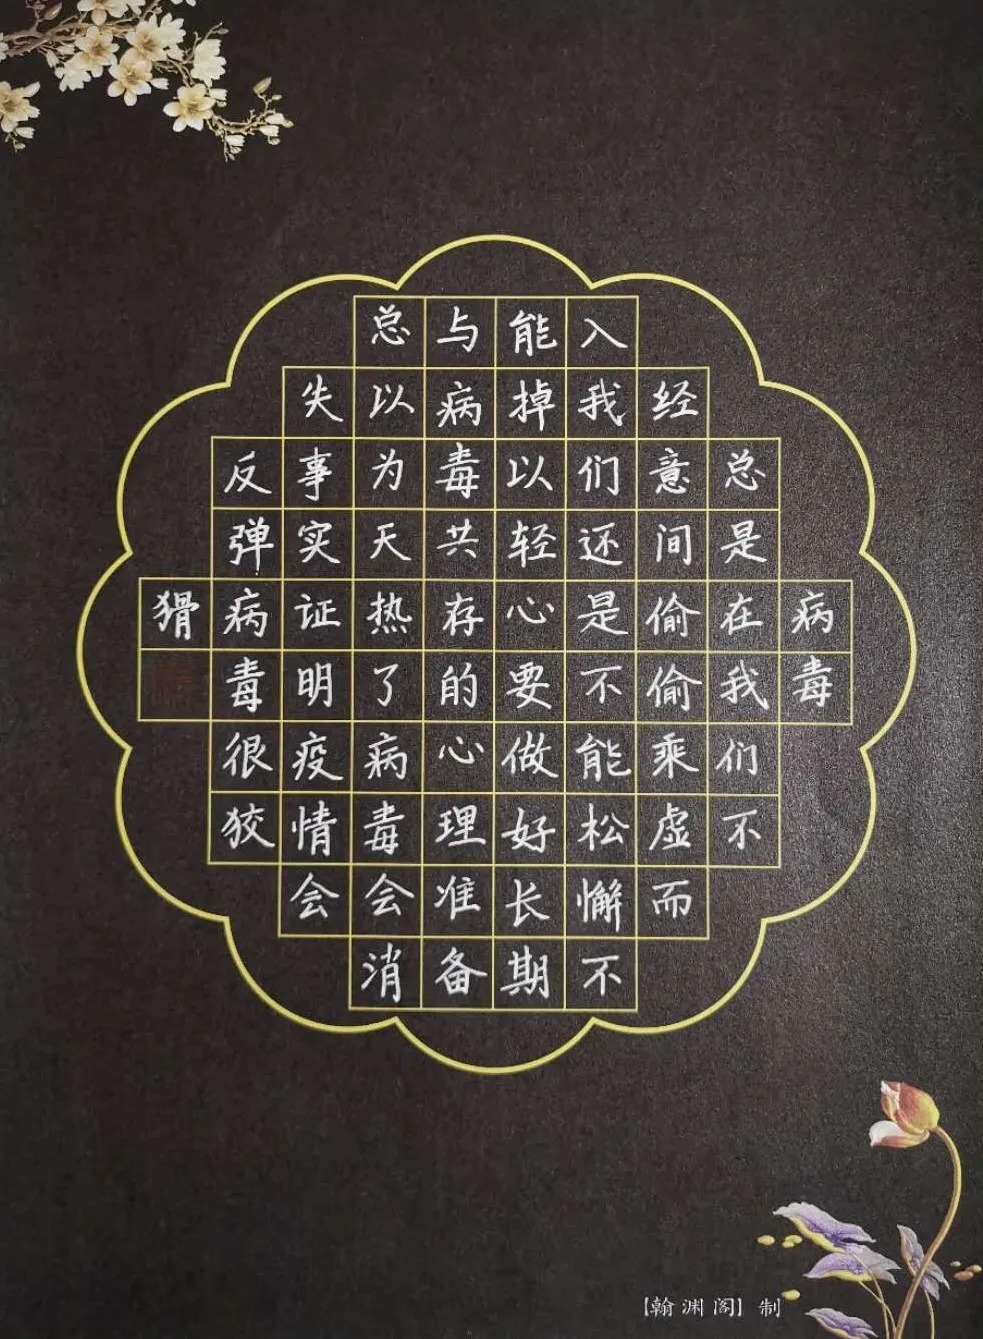 病毒
总是在我们不
经意间偷偷乘虚而
入我们还是不能松懈不
能掉以轻心要做好长期
与病毒共存的心理准备
总以为天热了病毒会消
失事实证明疫情会
反弹病毒很狡
猾
【翰渊阁】制